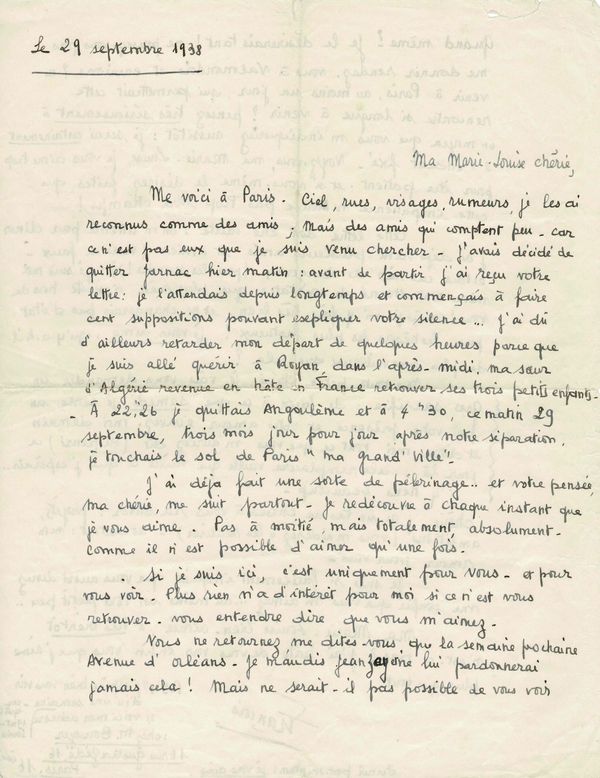 Le 29 septembre 1938
Ma Marie-Louise chérie,
Me voici à Paris - Ciel, rues, visages, rumeurs, je les ai
reconnus comme des amis ; mais des amis qui comptent peu - car
ce n'est pas eux que je suis venu chercher - J'avais décidé de
quitter Jarnac hier matin : avant de partir j'ai reçu votre
lettre : je l'attendais depuis longtemps et commençais à faire
cent suppositions pouvant expliquer votre silence... J'ai dû
d'ailleurs retarder mon départ de quelques heures parce que
je suis allé quérir à Royan, dans l'après-midi, ma sœur
d'Algérie revenue en hâte en France retrouver ses trois petits enfants -
- À 22"26 je quittais Angoulême et à 4"30, ce matin 29
septembre, trois mois jour pour jour après notre séparation,
je touchais le sol de Paris "ma grand'ville"!
J'ai déjà fait une sorte de pélerinage... et votre pensée,
ma chérie, me suit partout - Je redécouvre à chaque instant que
je vous aime - Pas à moitié mais totalement, absolument -
comme il n'est possible d'aimer qu'une fois -
.. Si je suis ici, c'est uniquement pour vous - et pour
vous voir - Plus rien n'a d'intérêt pour moi si ce n'est vous
retrouver - vous entendre dire que vous m'aimez -
Vous ne retournez me dites-vous, que la semaine prochaine
Avenue d'Orléans - Je maudis Jean je ne lui pardonnerai
jamais cela ! Mais ne serait-il pas possible de vous voir